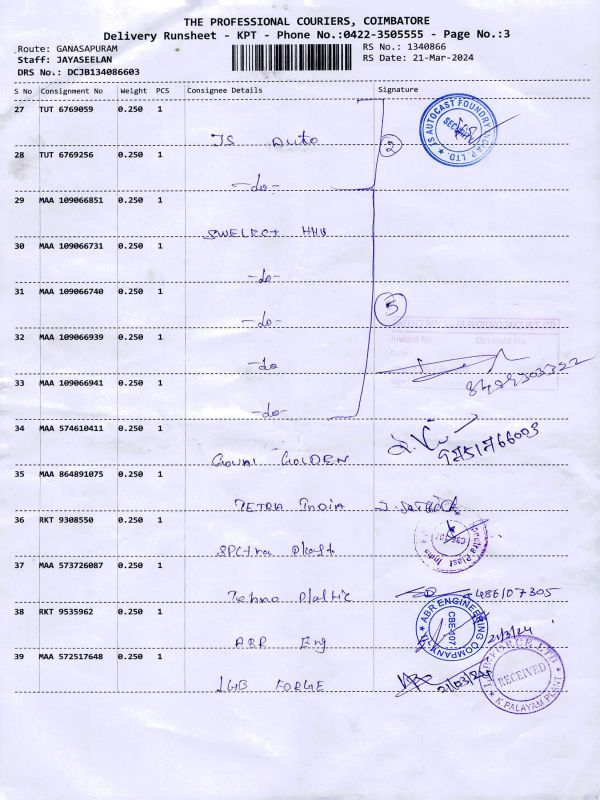 THE PROFESSIONAL COURIERS, COIMBATORE
Delivery Runsheet - KPT - Phone No.:0422-3505555 - Page No.:3
Route: GANASAPURAM
RS No.: 1340866
Staff: JAYASEELAN
RS Date: 21-Mar-2024
DRS No.: DCJB134086603
S No Consignment No Weight PCS Consignee Details Signature
27 TUT 6769059 0.250 1
JS Auto
JS AUTOCAST FOUNDRY INDIA P. LTD.
SECURITY
2
28 TUT 6769256 0.250 1
-do-
29 MAA 109066851 0.250 1
SWELECT HHV
30 MAA 109066731 0.250 1
-do-
31 MAA 109066740 0.250 1
-do-
5
32 MAA 109066939 0.250 1
Inward No. Outward No.
-do
33 MAA 109066941 0.250 1
-do-
34 MAA 574610411 0.250 1
GOLDEN
35 MAA 864891075 0.250 1
TETRA INDIA
36 RKT 9308550 0.250 1
Spectra Plast India
Plast
37 MAA 573726087 0.250 1
Tekno Plastic
38 RKT 9535962 0.250 1
ABR ENGINEERING COMPANY
CBE-107
21/3/24
ABR Eng
39 MAA 572517648 0.250 1
RECEIVED
K PALAYAM PLANT
LGB FORGE
21/03/24